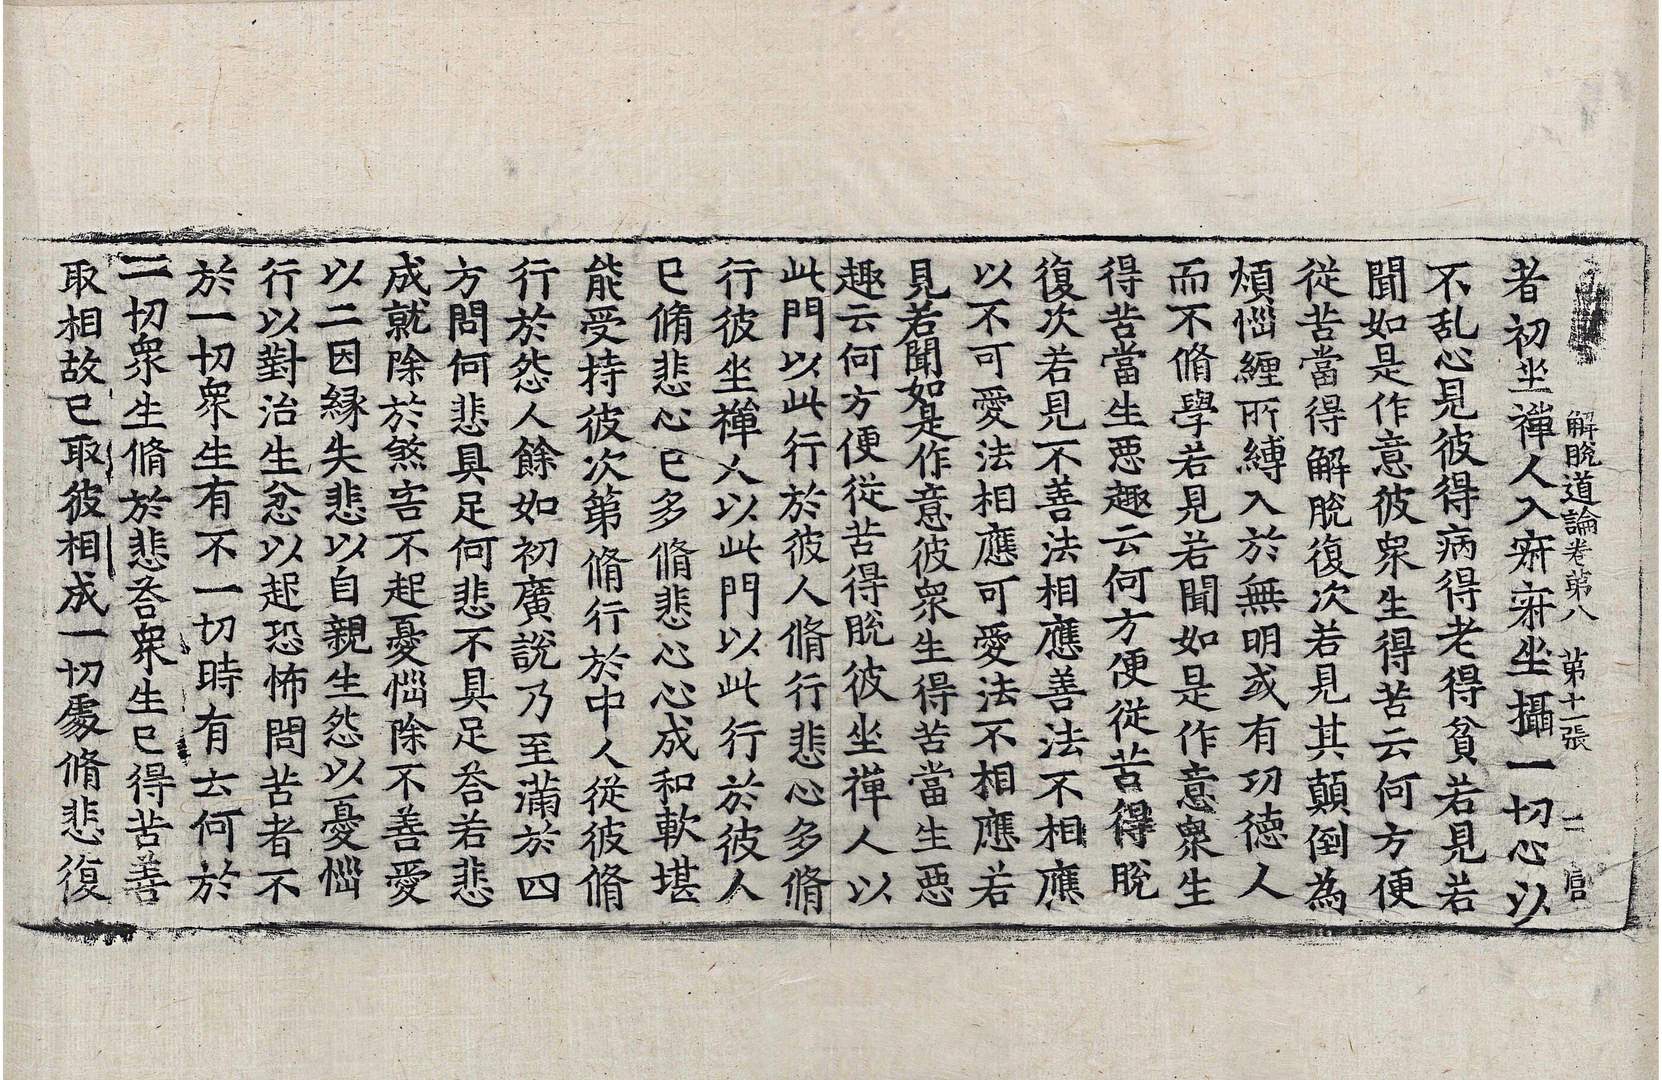 解脫道論卷第八　第十一張　二　官
者初坐禪人入寂寂坐攝一切心以
不乱心見彼得病得老得貧若見若
聞如是作意彼衆生得苦云何方便
從苦當得解脫復次若見其顛倒為
煩惱纏所縛入於無明或有功德人
而不脩學若見若聞如是作意衆生
得苦當生惡趣云何方便從苦得脫
復次若見不善法相應善法不相應
以不可愛法相應可愛法不相應若
見若聞如是作意彼衆生得苦當生惡
趣云何方便從苦得脫彼坐禪人以
此門以此行於彼人脩行悲心多脩
行彼坐禪人以此門以此行於彼人
已脩悲心已多脩悲心心成和軟堪
能受持彼次第脩行於中人從彼脩
行於怨人餘如初廣說乃至滿於四
方問何悲具足何悲不具足荅若悲
成就除於煞害不起憂惱除不善愛
以二因縁失悲以自親生怨以憂惱
行以對治生忿以起恐怖問苦者不
於一切衆生有不一切時有云何於
一切衆生脩於悲荅衆生已得苦善
取相故已取彼相成一切處脩悲復